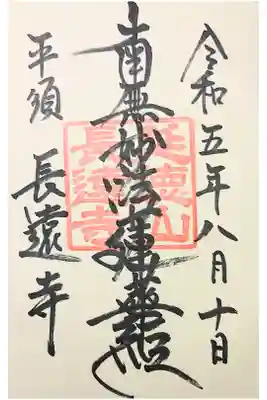 令和五年八月十日
南無妙法蓮華経
延徳山
長遠寺
平須
長遠寺